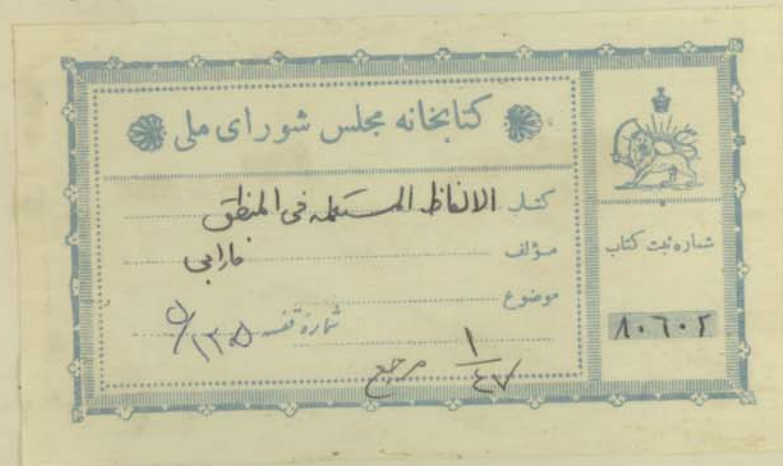 کتابخانه مجلس شورای ملی
کتاب الالفاظ المستعملة فی المنطق
مؤلف فارابی
موضوع
شماره قفسه
۱
۴۷
مرجع
شماره ثبت کتاب
۸۰۶۰۲